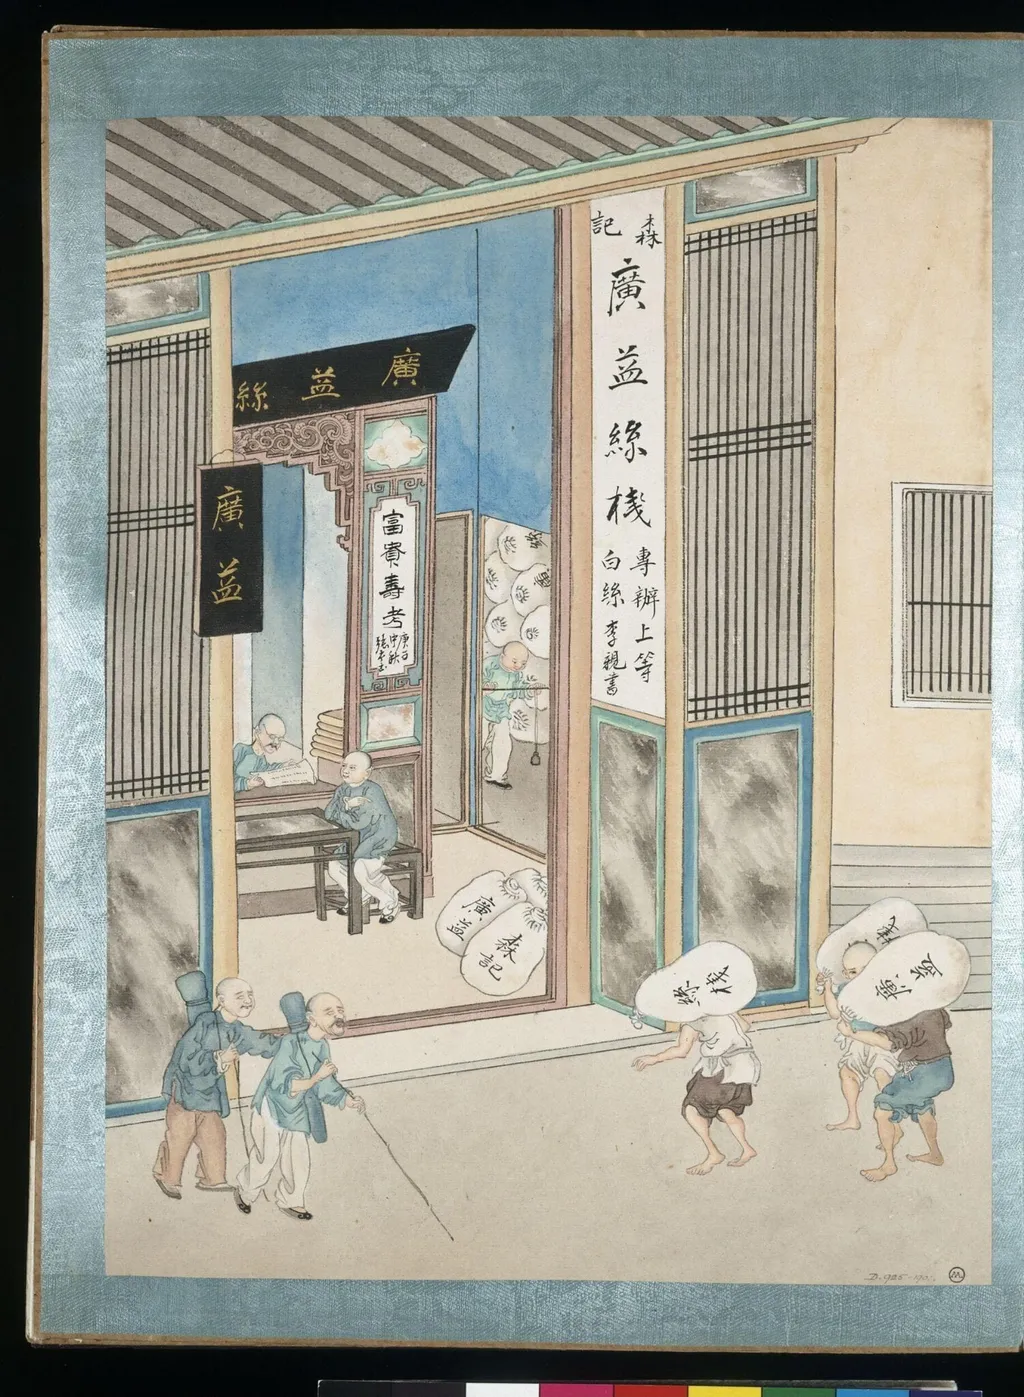 森記
廣益絲棧
專辦上等
白絲李親書
廣益絲
廣益
富貴壽考
庚子
中秋
廣益
森記
棧
D.905-1901
M